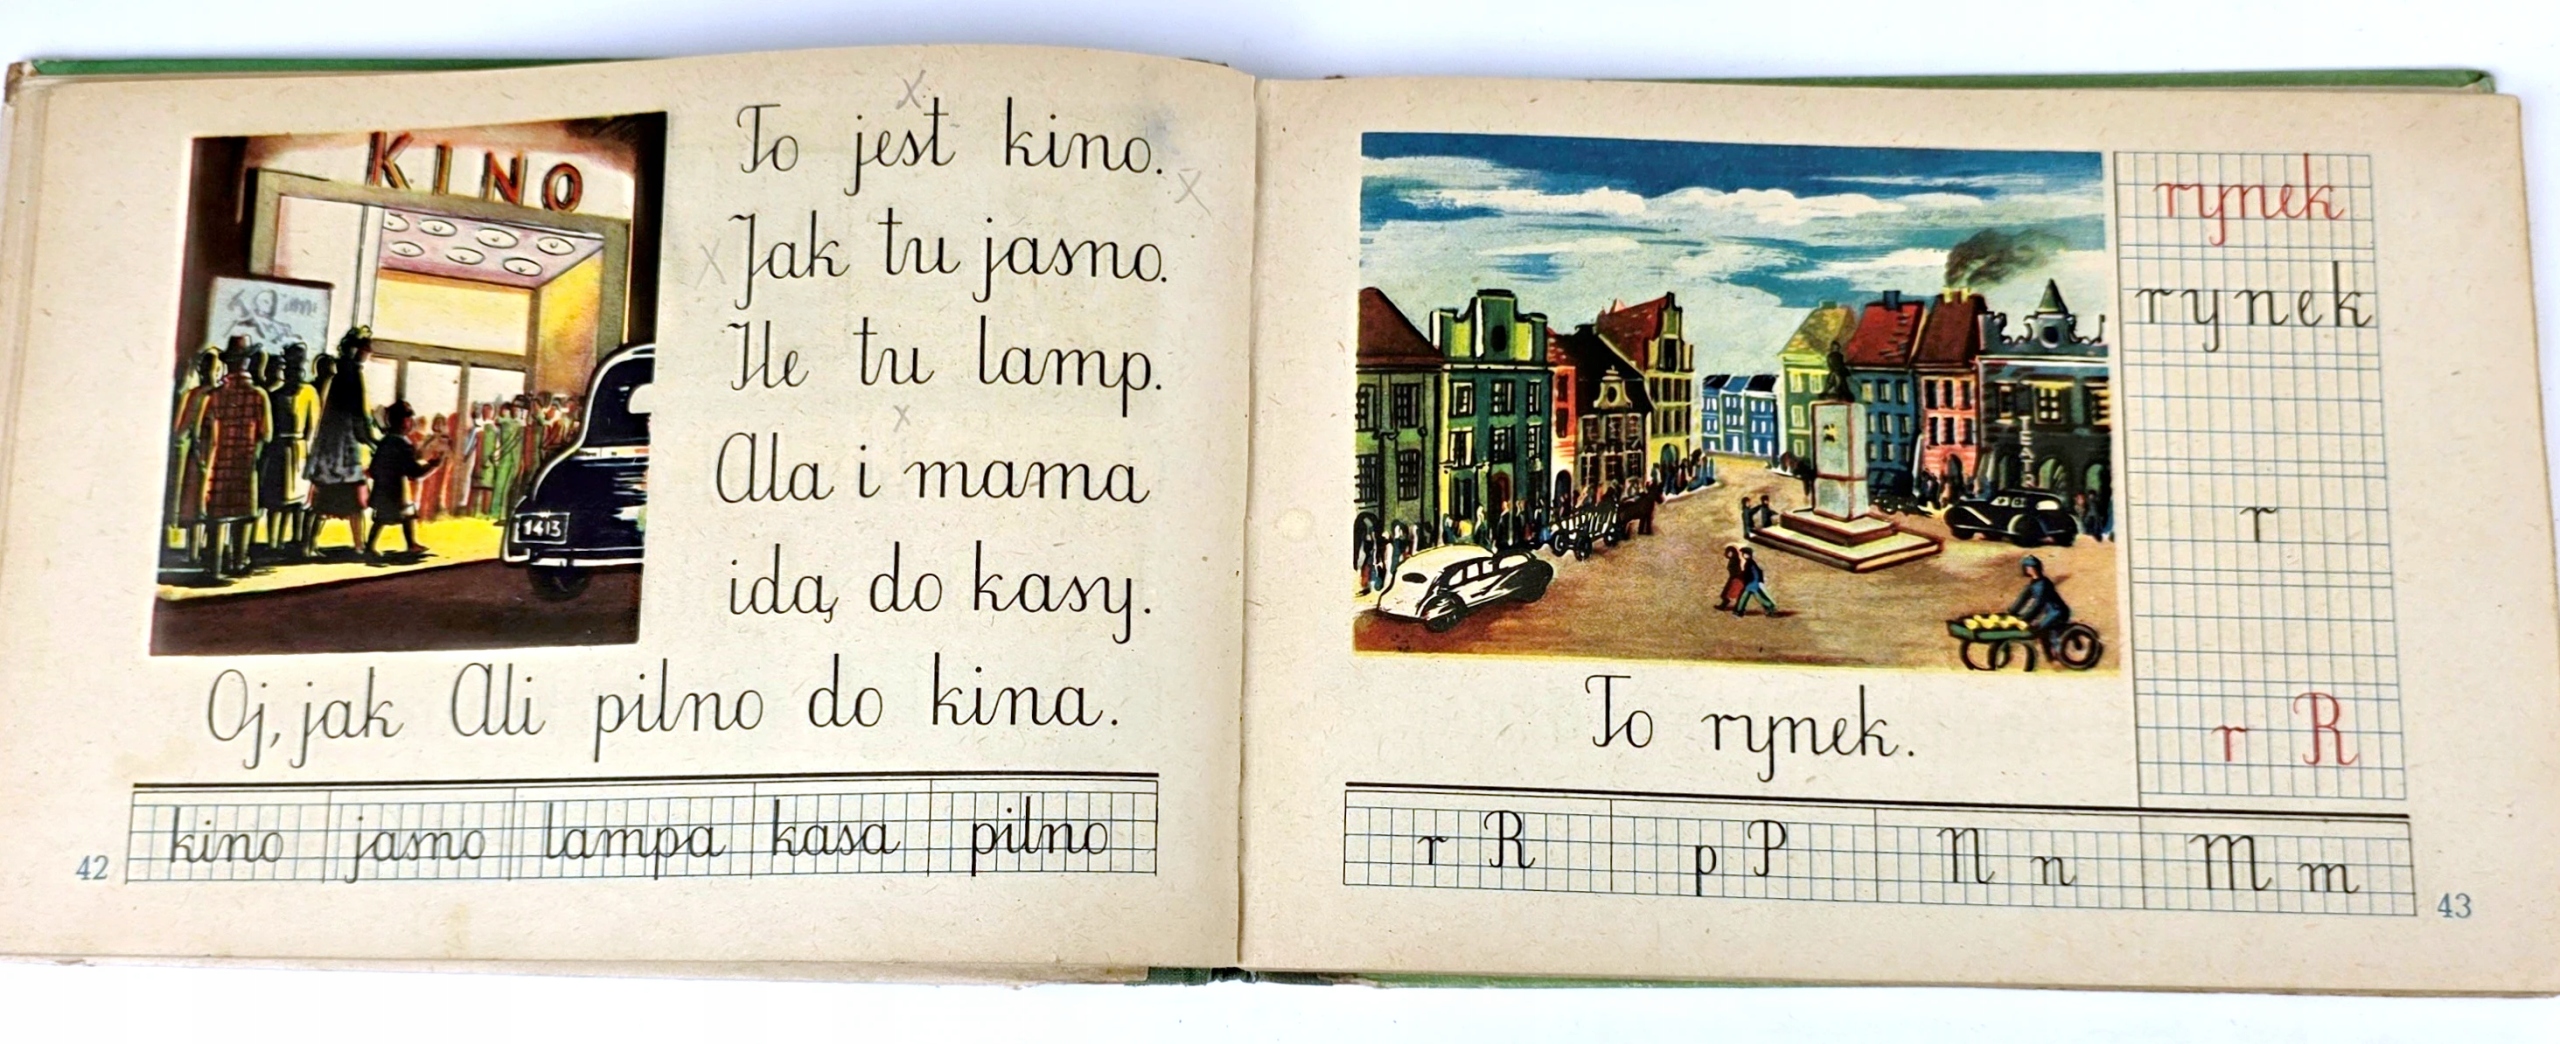 KINO
To jest kino.
Jak tu jasno.
Ile tu lamp.
Ala i mama
idą do kasy.
Oj, jak Ali pilno do kina.
kino jasno lampa kasa pilno
42
1413
TEATR
To rynek.
rynek
rynek
r
r R
r R p P N n M m
43